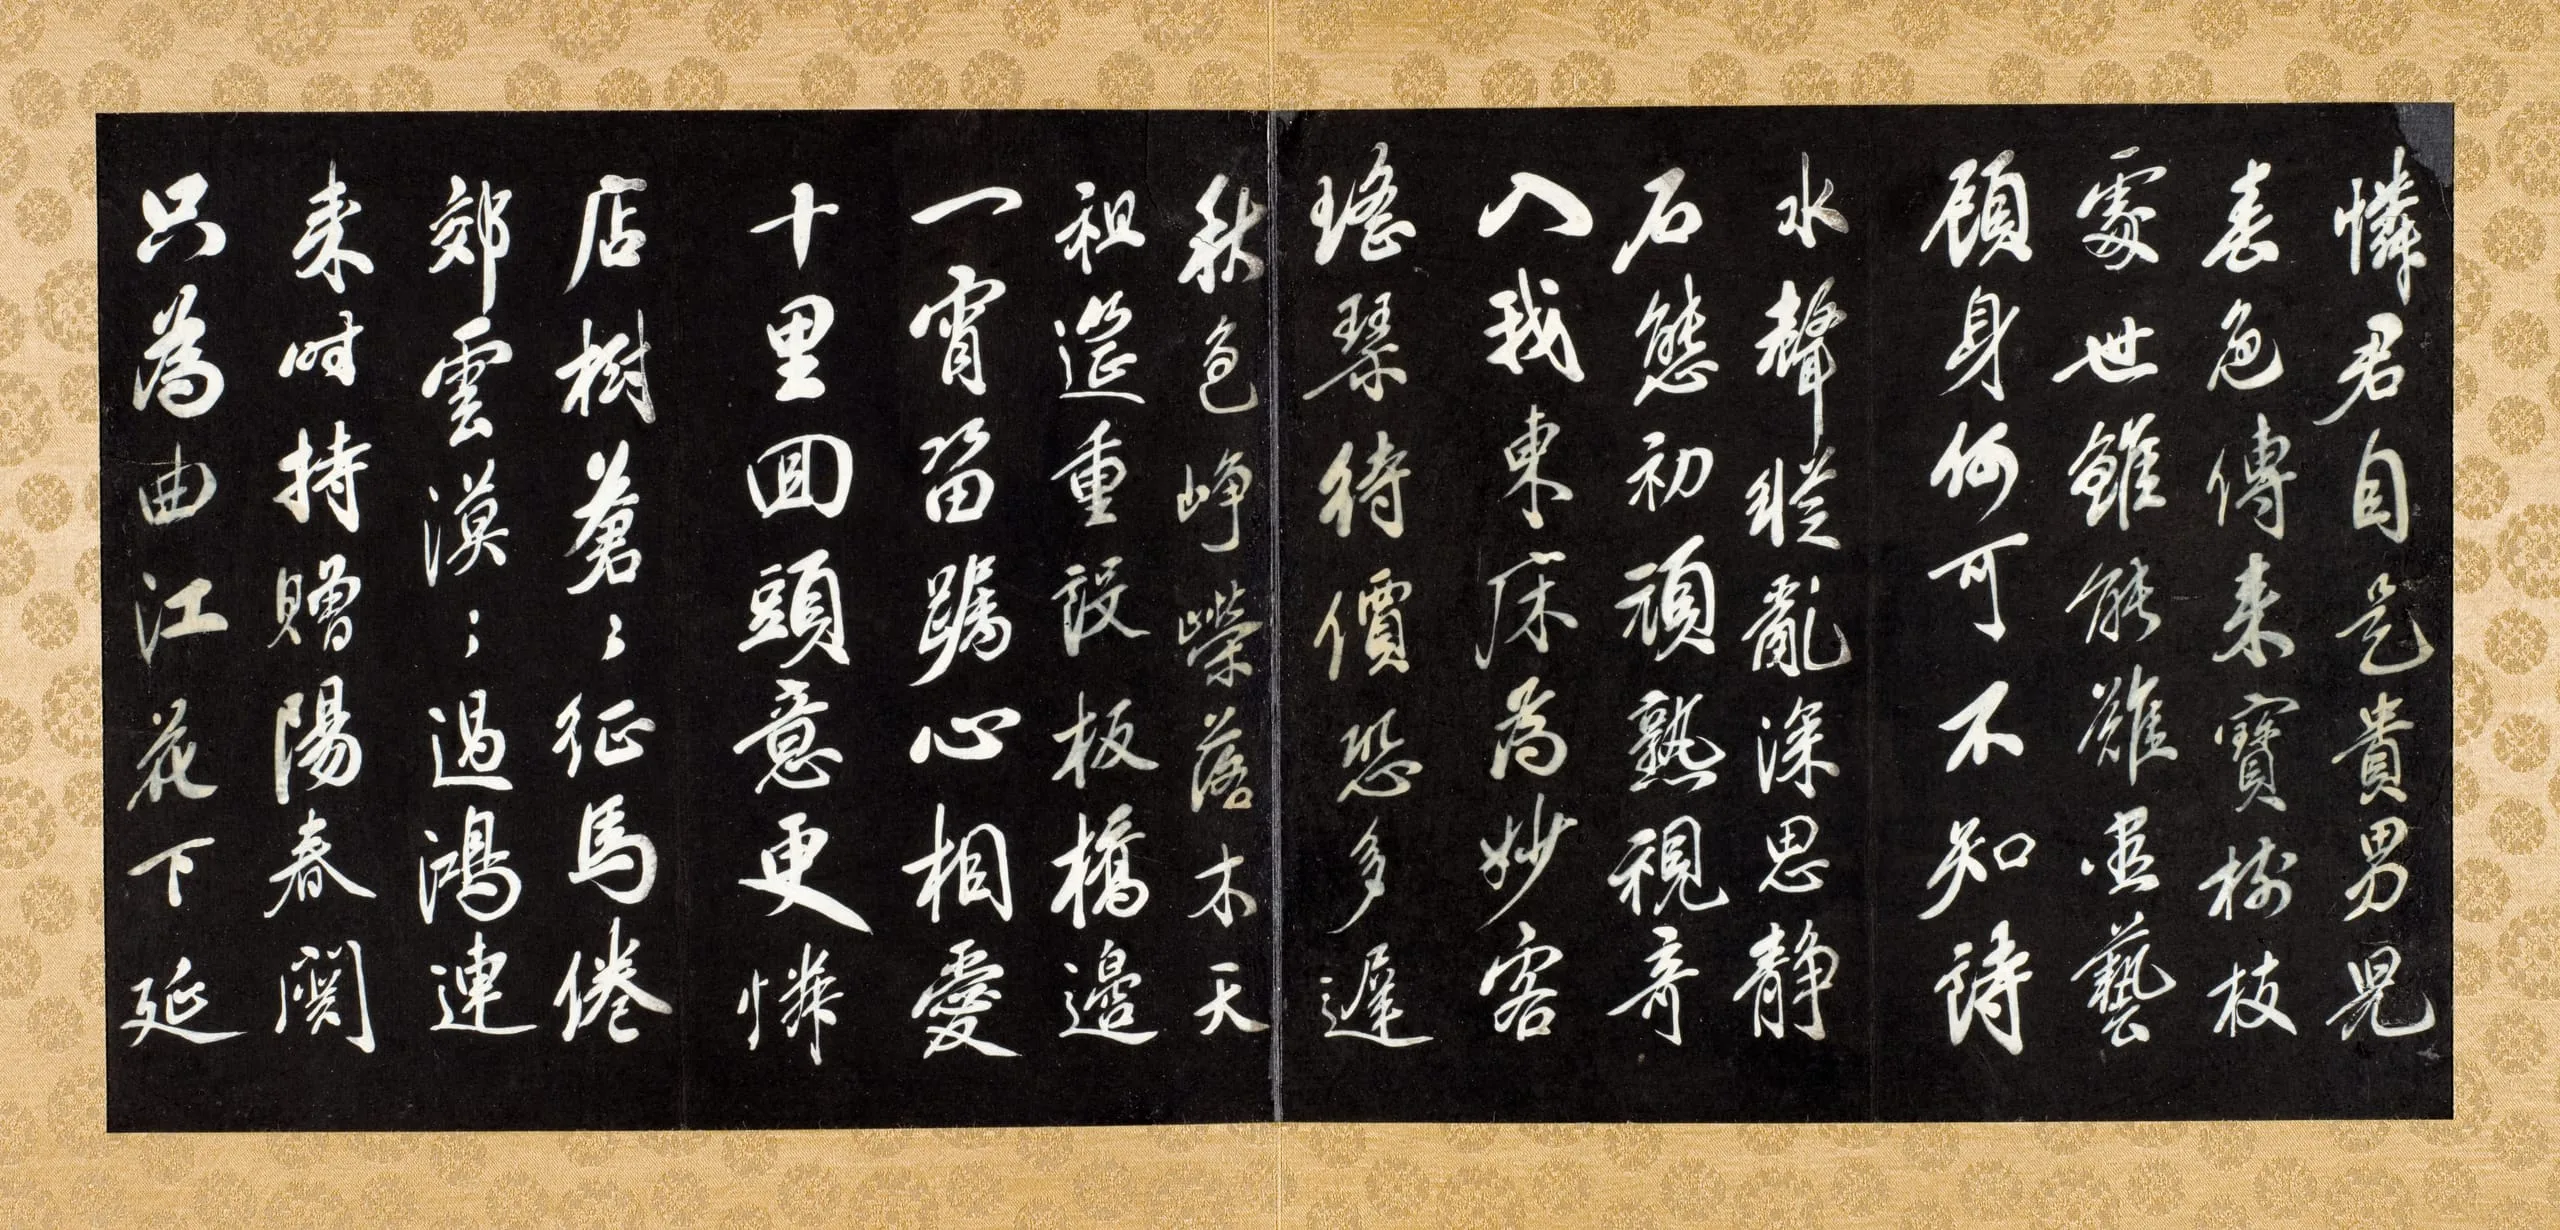 憐君自是貴男兒
春色傳来寶樹枝
處世雖能難盡藝
顧身何可不知詩
水聲縱亂深思静
石態初頑熟視奇
入我東床為妙客
瑤琴待價恐多遲
秋色崢嶸落木天
祖筵重設板橋邊
一宵留躅心相愛
十里回頭意更憐
店樹蒼〻征馬倦
郊雲漠〻過鴻連
来時持贈陽春闋
只為曲江花下延